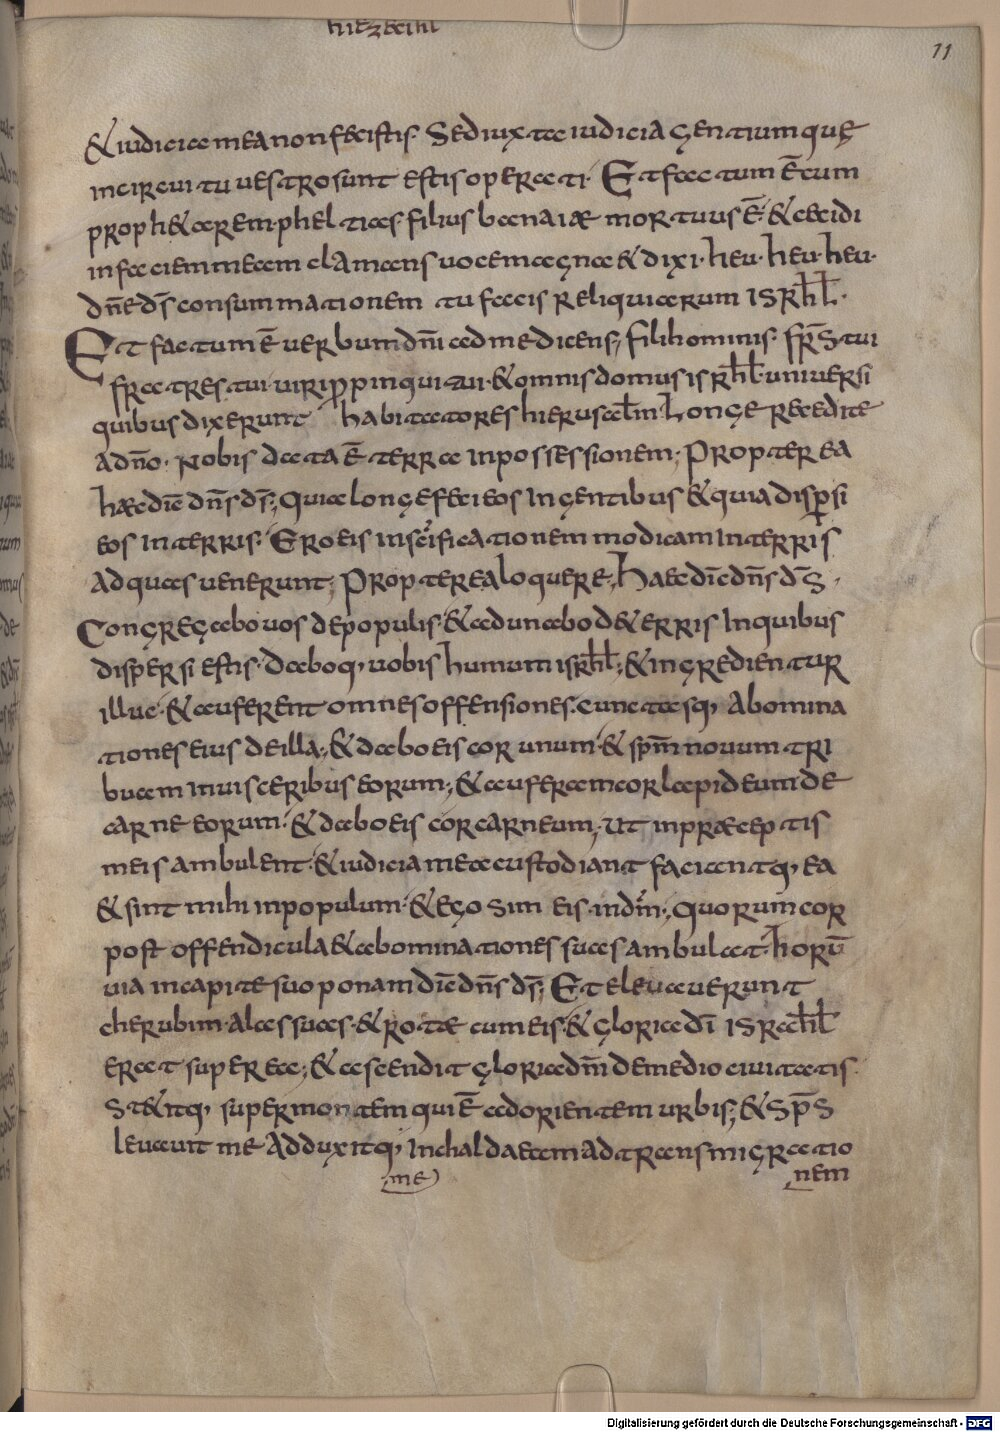 11
& iudicia mea non fecistis. Sed iuxta iudicia gentium quę
in circuitu uestro sunt estis operati. Et factum ē cum
proph&arem. pheltias. filius banaiæ mortuus ē. & cecidi
in faciem meam clamans uoce magna & dixi. heu. heu. heu.
dn̄e ds̄ consummationem tu facis reliquiarum isrh̄l.
Et factum ē uerbum dn̄i ad me dicens; fili hominis. frs̄ tui
fratres tui. uiri ꝓpinqui tui. & omnis domus isrh̄l. uniuersi
quibus dixerunt habitatores hierusalm̄ Longe recedite
a dn̄o. Nobis data ē terra in possessionem; Propterea
hæc dic̄ dn̄s ds̄; Quia longe feci eos in gentibus & quia dispersi
eos in terris. Ero eis in sc̄ificationem modicam in terris
ad quas uenerunt; Propterea loquere; Haec dic̄ dn̄s ds̄.
Congregabo uos de populis. & adunabo de terris in quibus
dispersi estis. Daboq; uobis humum isrh̄l; & ingredientur
illuc. & auferent omnes offensiones. cunctasq; abomina
tiones eius de illa; & dabo eis cor unum. & spm̄ nouum tri
buam in uisceribus eorum; & auferam cor lapideum de
carne eorum. & dabo eis cor carneum; Ut in præceptis
meis ambulent. & iudicia mea custodiant. faciantq; ea
& sint mihi in populum. & ego sim eis in dm̄; Quorum cor
post offendicula & abominationes suas ambulat. horū
uia in capite suo ponam dic̄ dn̄s ds̄; Et eleuauerunt
cherubim. alas suas. & rotæ cum eis. & gloria dī israh̄l
erat super ea; & ascendit gloria dn̄i de medio ciuitatis.
St&itq; super montem qui ē ad orientem urbis; & sps̄
leuauit me Adduxitq; in chaldaeam ad transmigratio
me nem
Digitalisierung gefördert durch die Deutsche Forschungsgemeinschaft - DFG